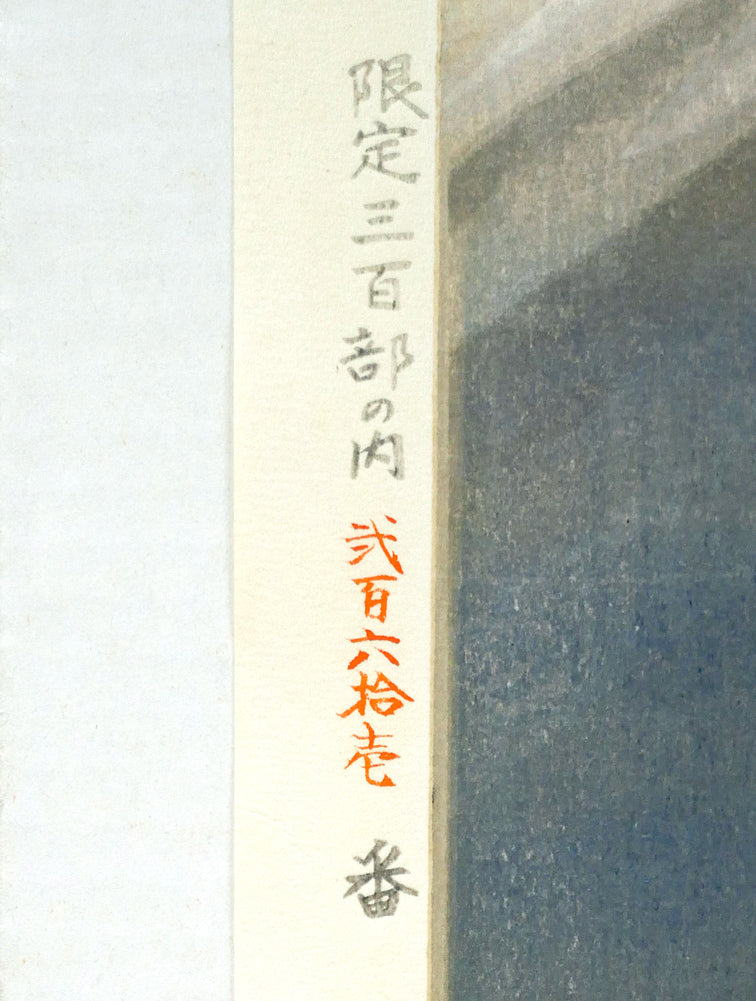 限定三百部の内 弐百六拾壱 番